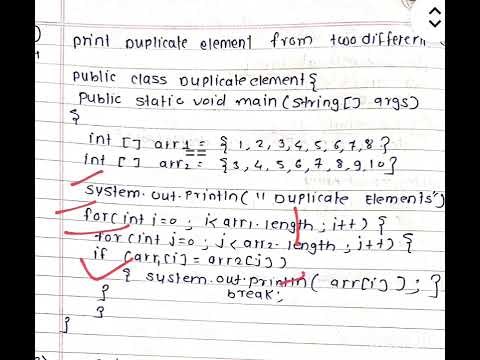 print Duplicate element from two differen
public class Duplicateelement {
public static void main (string[] args)
{
int [] arr1 = { 1, 2, 3, 4, 5, 6, 7, 8 }
int [] arr2 = {3, 4, 5, 6, 7, 8, 9, 10}
system.out.println ( " Duplicate Elements")
for(int i=0 ; i<arr1.length ; i++) {
for (int j=0 ; j<arr2.length ; j++) {
if (arr1[i] = arr2[j])
{ system.out.println ( arr[i] ) ; }
break;
}
}
}